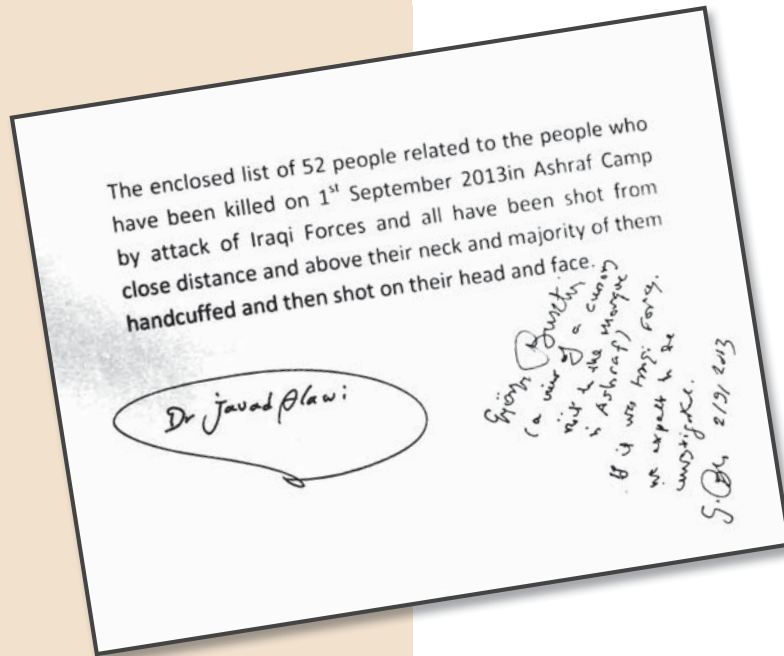 The enclosed list of 52 people related to the people who
have been killed on 1st September 2013in Ashraf Camp
by attack of Iraqi Forces and all have been shot from
close distance and above their neck and majority of them
handcuffed and then shot on their head and face.
Dr Javad Alawi
(a view of a cursory
visit to the morgue
in Ashraf)
If it was Iraqi Force,
we expect to be
investigate.
2/9/2013